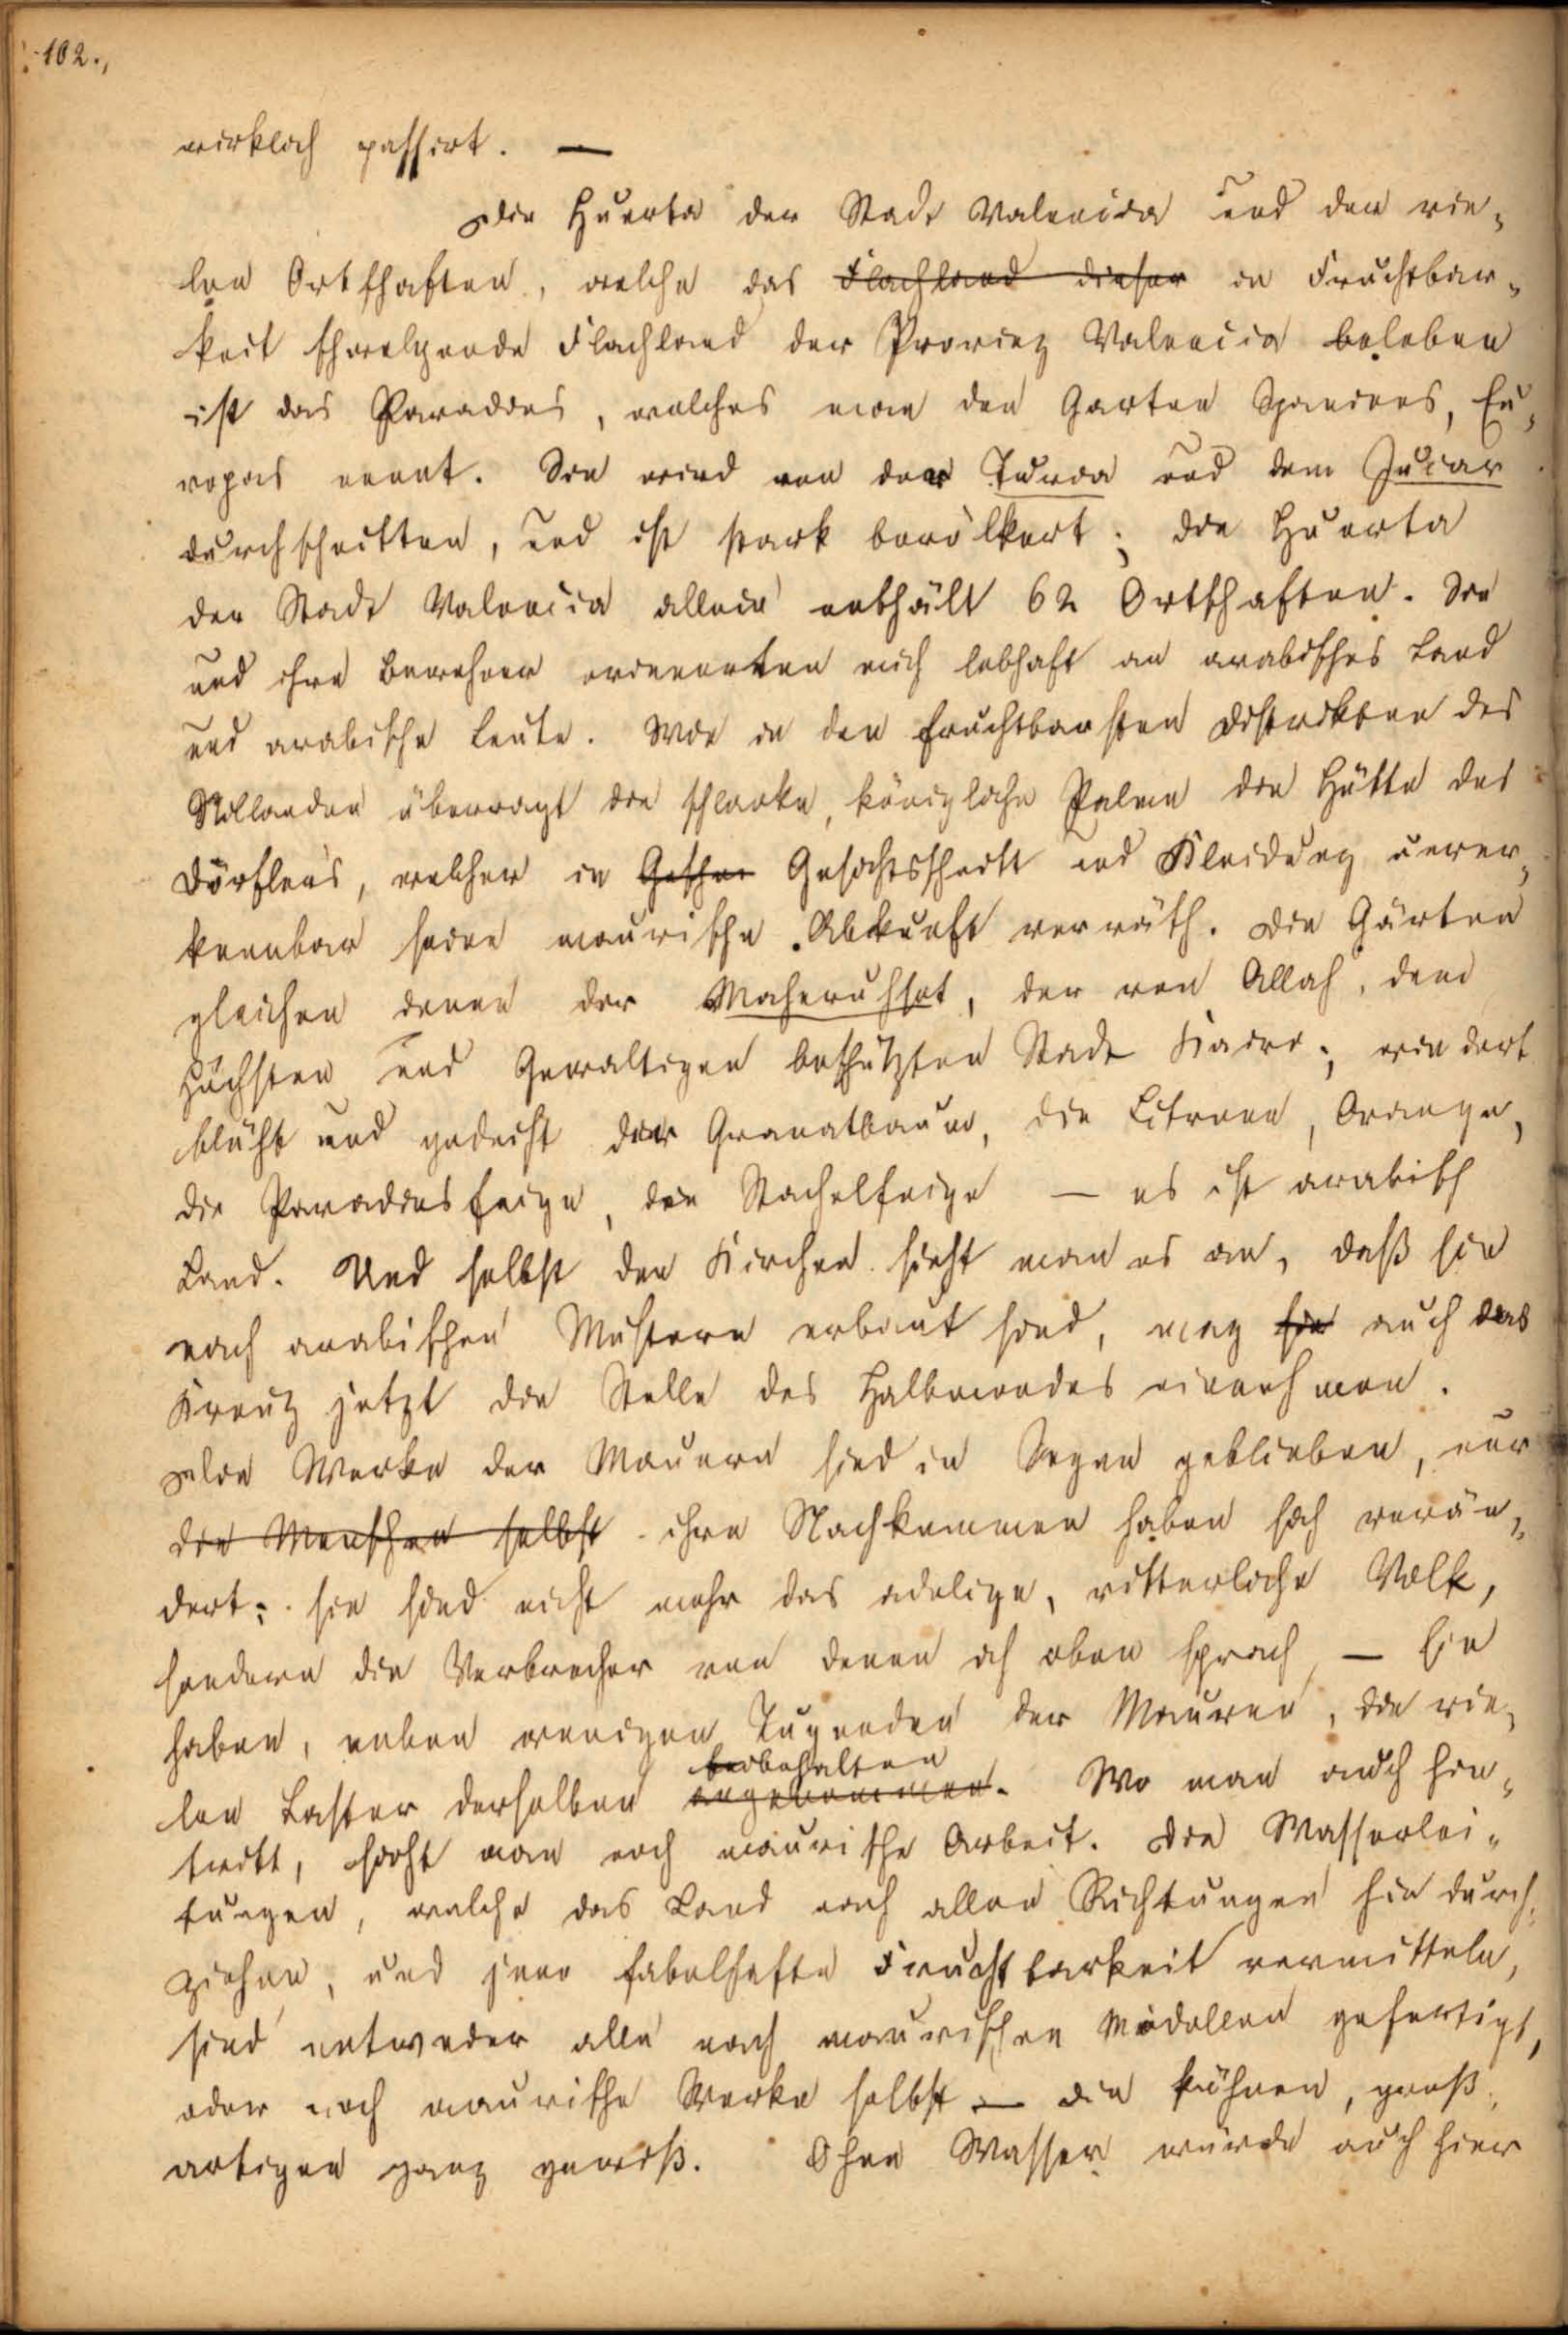 102.,
wirklich passirt. —
Die Huerta der Stadt Valencia und der vie-
len Ortschaften, welche das Flachland dieser in Fruchtbar-
keit schwelgende Flachland der Provinz Valencia beleben
ist das Paradies, welches man den Garten Spaniens, Eu-
ropas nennt. Sie wird von der Turia und dem Jucar
durchschnitten, und ist stark bevölkert; die Huerta
der Stadt Valencia allein enthält 62 Ortschaften. Sie
und ihre Bewohner erinnerten mich lebhaft an arabisches Land
und arabische Leute. Wie in den fruchtbarsten Distrikten des
Nillandes überragt die schlanke, königliche Palme die Hütte des
Dörfleins, welcher in Gesichtsschnitt und Kleidung unver-
kennbar seine maurische Abkunft verräth. Die Gärten
gleichen denen der Maheruhset, der von Allah, dem
Höchsten und Gewaltigen beschützten Stadt Kairo; wie dort
blüht und gedeiht der Granatbaum, die Citrone, Orange,
die Paradiesfeige, die Stachelfeige — es ist arabisch
Land. Und selbst den Kirchen sieht man es an, daß sie
nach arabischen Mustern erbaut sind, mag sie auch das
Kreuz jetzt die Stelle des Halbmondes einnehmen.
Die Werke der Mauern sind in Segen geblieben, nur
die Menschen selbst ihre Nachkommen haben sich verän-
dert; sie sind nicht mehr das adelige, ritterliche Volk,
sondern die Verbrecher von denen ich oben sprach, — Sie
haben, neben wenigen Tugenden der Mauren, die vie-
beibehalten
len Laster derselben angenommen. Wo man auch hin-
tritt, sieht man noch maurische Arbeit. Die Wasserlei-
tungen, welche das Land nach allen Richtungen hin durch-
ziehen, und jene fabelhafte Fruchtbarkeit vermitteln,
sind entweder alle nach maurischen Modellen gefertigt,
oder noch maurische Werke selbst — die kühnen, groß-
artigen ganz gewiß. Ohne Wasser würde auch hier